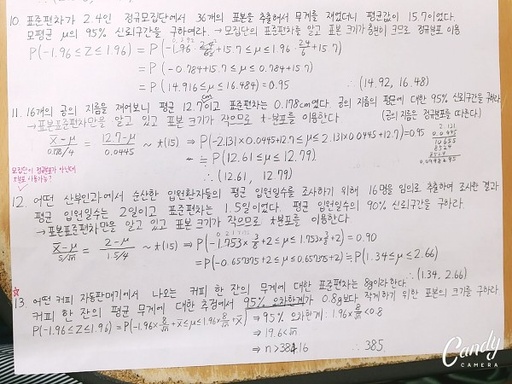 10. 표준편차가 2.4인 정규모집단에서 36개의 표본을 추출해서 무게를 재었더니 평균값이 15.7이었다.
모평균 μ의 95% 신뢰구간을 구하여라. → 모집단의 표준편차를 알고 표본 크기가 충분히 크므로 정규분포 이용
P(-1.96≤Z≤1.96) = P(-1.96·2.4/6+15.7≤μ≤1.96·2.4/6+15.7)
= P(-0.784+15.7≤μ≤0.784+15.7)
= P(14.916≤μ≤16.484)=0.95 ∴ (14.92, 16.48)
11. 16개의 공의 지름을 재어보니 평균 12.7cm이고 표준편차는 0.178cm였다. 공의 지름의 평균에 대한 95% 신뢰구간을 구하라
→ 표본표준편차만을 알고 있고 표본 크기가 작으므로 t-분포를 이용한다 (공의 지름은 정규분포를 따른다)
x̄-μ / 0.178/4 = 12.7-μ / 0.0445 ~ t(15) ⇒ P(-2.131×0.0445+12.7≤μ≤2.131×0.0445+12.7)=0.95
≒ P(12.61≤μ≤12.79)
∴ (12.61, 12.79)
12. 어떤 산부인과에서 순산한 입원환자들의 평균 입원일수를 조사하기 위해 16명을 임의로 추출하여 조사한 결과
평균 입원일수는 2일이고 표준편차는 1.5일이었다. 평균 입원일수의 90% 신뢰구간을 구하라.
→ 표본표준편차만을 알고 있고 표본 크기가 작으므로 t분포를 이용한다
x̄-μ / s/√n = 2-μ / 1.5/4 ~ t(15) ⇒ P(-1.753×3/8+2≤μ≤1.753×3/8+2) = 0.90
=P(-0.657375+2≤μ≤0.657375+2)≒P(1.34≤μ≤2.66)
∴ (1.34, 2.66)
13. 어떤 커피 자동판매기에서 나오는 커피 한 잔의 무게에 대한 표준편차는 8g이라한다.
커피 한 잔의 평균 무게에 대한 추정에서 95% 오차한계가 0.8g보다 작게하기 위한 표본의 크기를 구하라
P(-1.96≤Z≤1.96)=P(-1.96×8/√n+x̄≤μ≤1.96×8/√n+x̄) ⇒ 95% 오차한계 1.96×8/√n<0.8
⇒ 19.6<√n
⇒ n>384.16 ∴ 385.
Candy
CAMERA